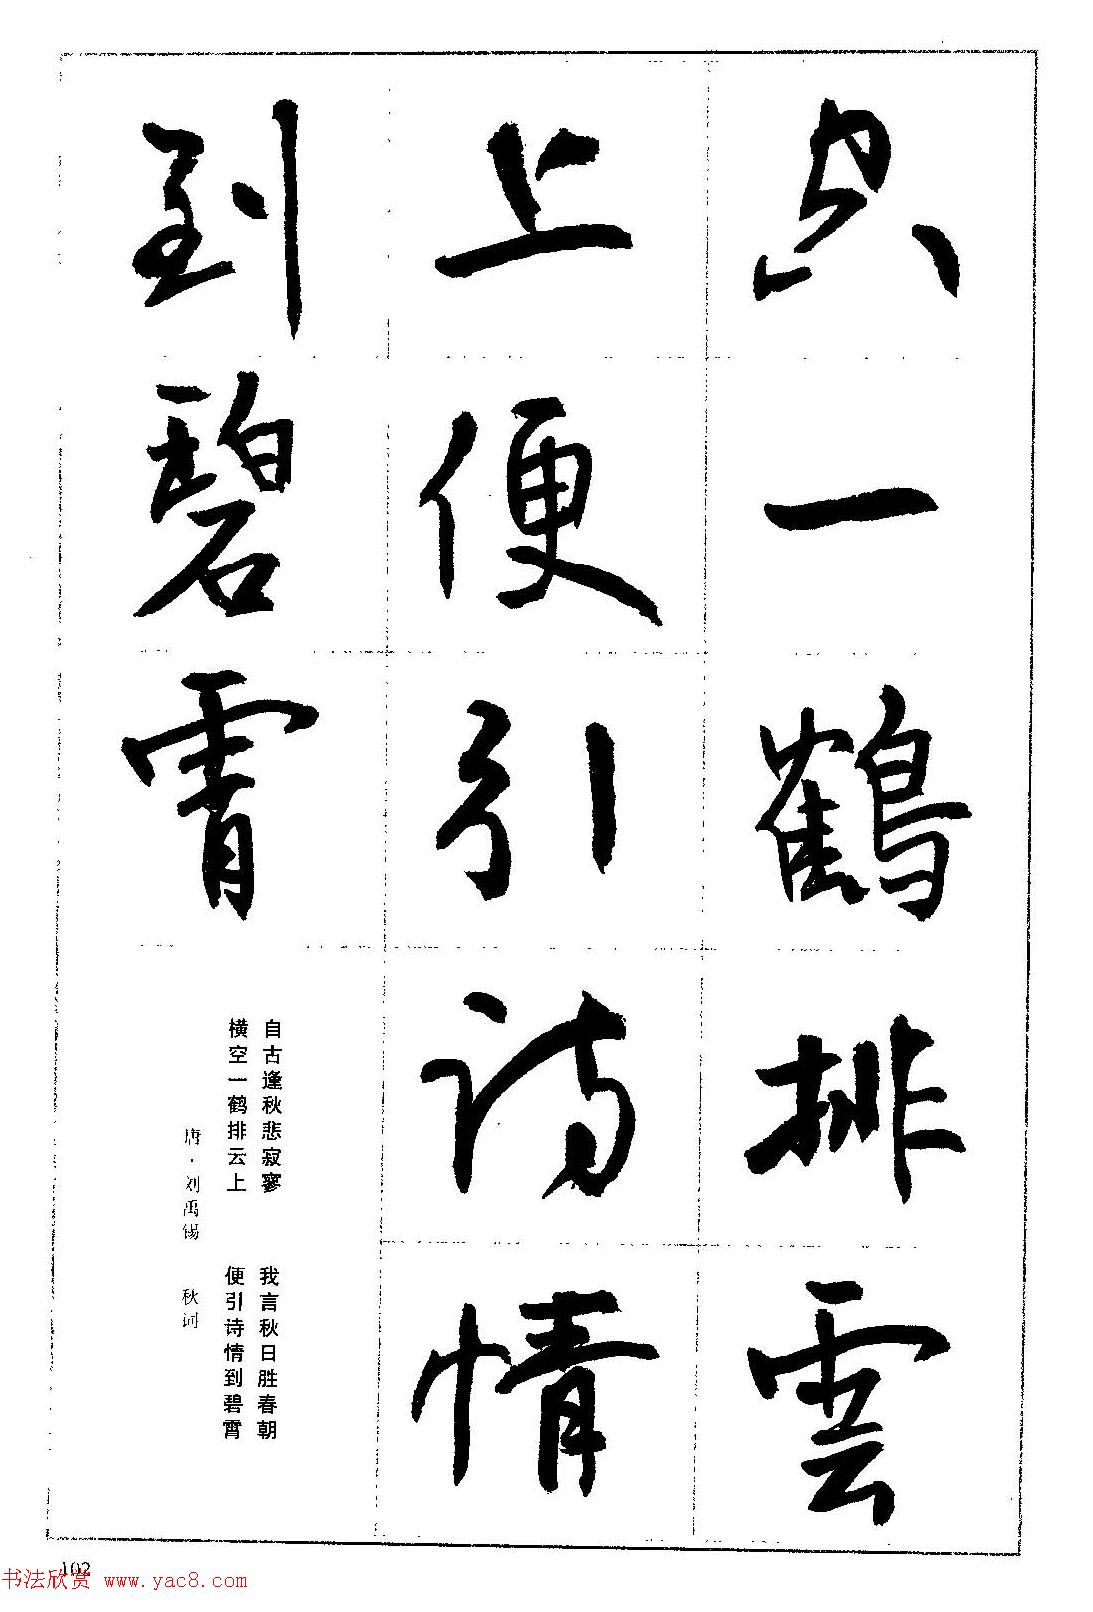 空一鶴排雲
上便引詩情
到碧霄
自古逢秋悲寂寥 我言秋日胜春朝
横空一鹤排云上 便引诗情到碧霄
唐·刘禹锡 秋词
102
书法欣赏 www.yac8.com